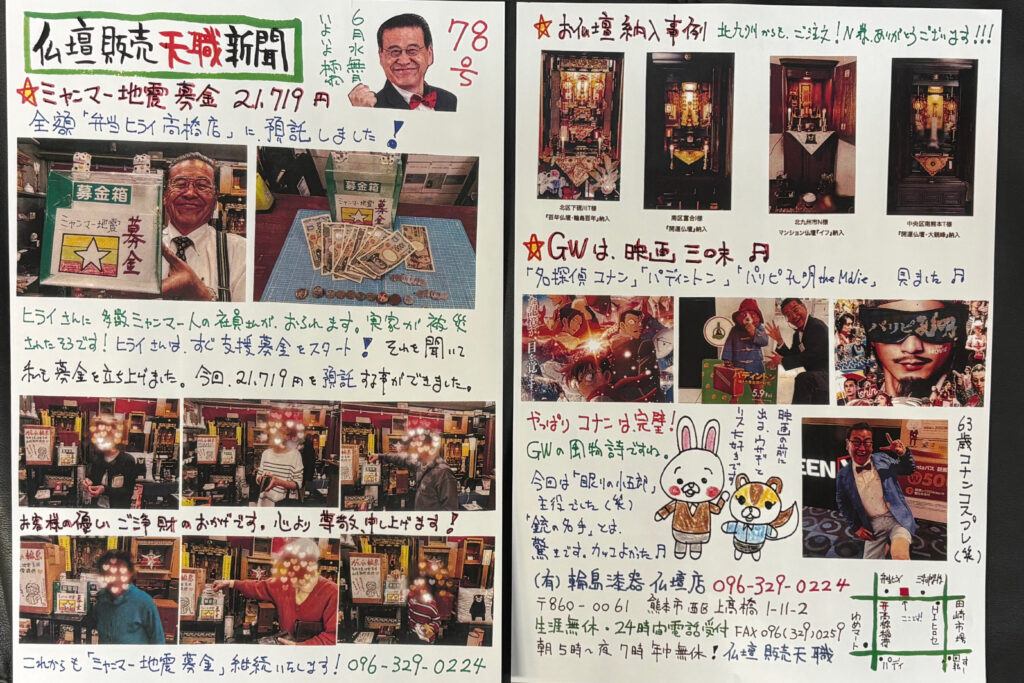 仏壇販売天職新聞
6月水無月
78号
☆ミャンマー地震募金 21,719円
全額「弁当ヒライ高橋店」に、預託しました!
募金箱
ミャンマー地震
募金
募金箱
ヒライさんに多数ミャンマー人の社員さんが、おられます。実家が被災
されたそうです!ヒライさんは、すぐ支援募金をスタート!それを聞いて
私も募金を立ち上げました。今回、21,719円を預託する事ができました。
お客様の優しいご浄財のおかげです。心より尊敬申し上げます!
これからも「ミャンマー地震募金」継続いたします! 096-329-0224
☆お仏壇納入事例 北九州からも、ご注文!N様、ありがとうございます!!!
北区下硯川T様
『百年仏壇・輪島百年』納入
南区富合I様
『開運仏壇』納入
北九州市N様
マンション仏壇『イフ』納入
中央区南熊本T様
『開運仏壇・大親峰』納入
GWは、映画三昧♬
「名探偵コナン」「パディントン」「パリピ孔明the Movie」見ました♬
パディントン
5.9
パリピ孔明
やっぱりコナンは、完璧!
GWの風物詩ですね。
今回は「眠りの小五郎」
主役でした(笑)
「銃の名手」とは、
驚きです。カッコよかった♬
映画の前に
出る、ウサギと
リス大好きです
63歳コナンコスプレ(笑)
(有)輪島漆器仏壇店 096-329-0224
〒860-0061 熊本市西区上高橋1-11-2
生涯無休・24時間電話受付 FAX096(329)0259
朝5時~夜7時年中無休!仏壇販売天職
ここです!
田崎市場